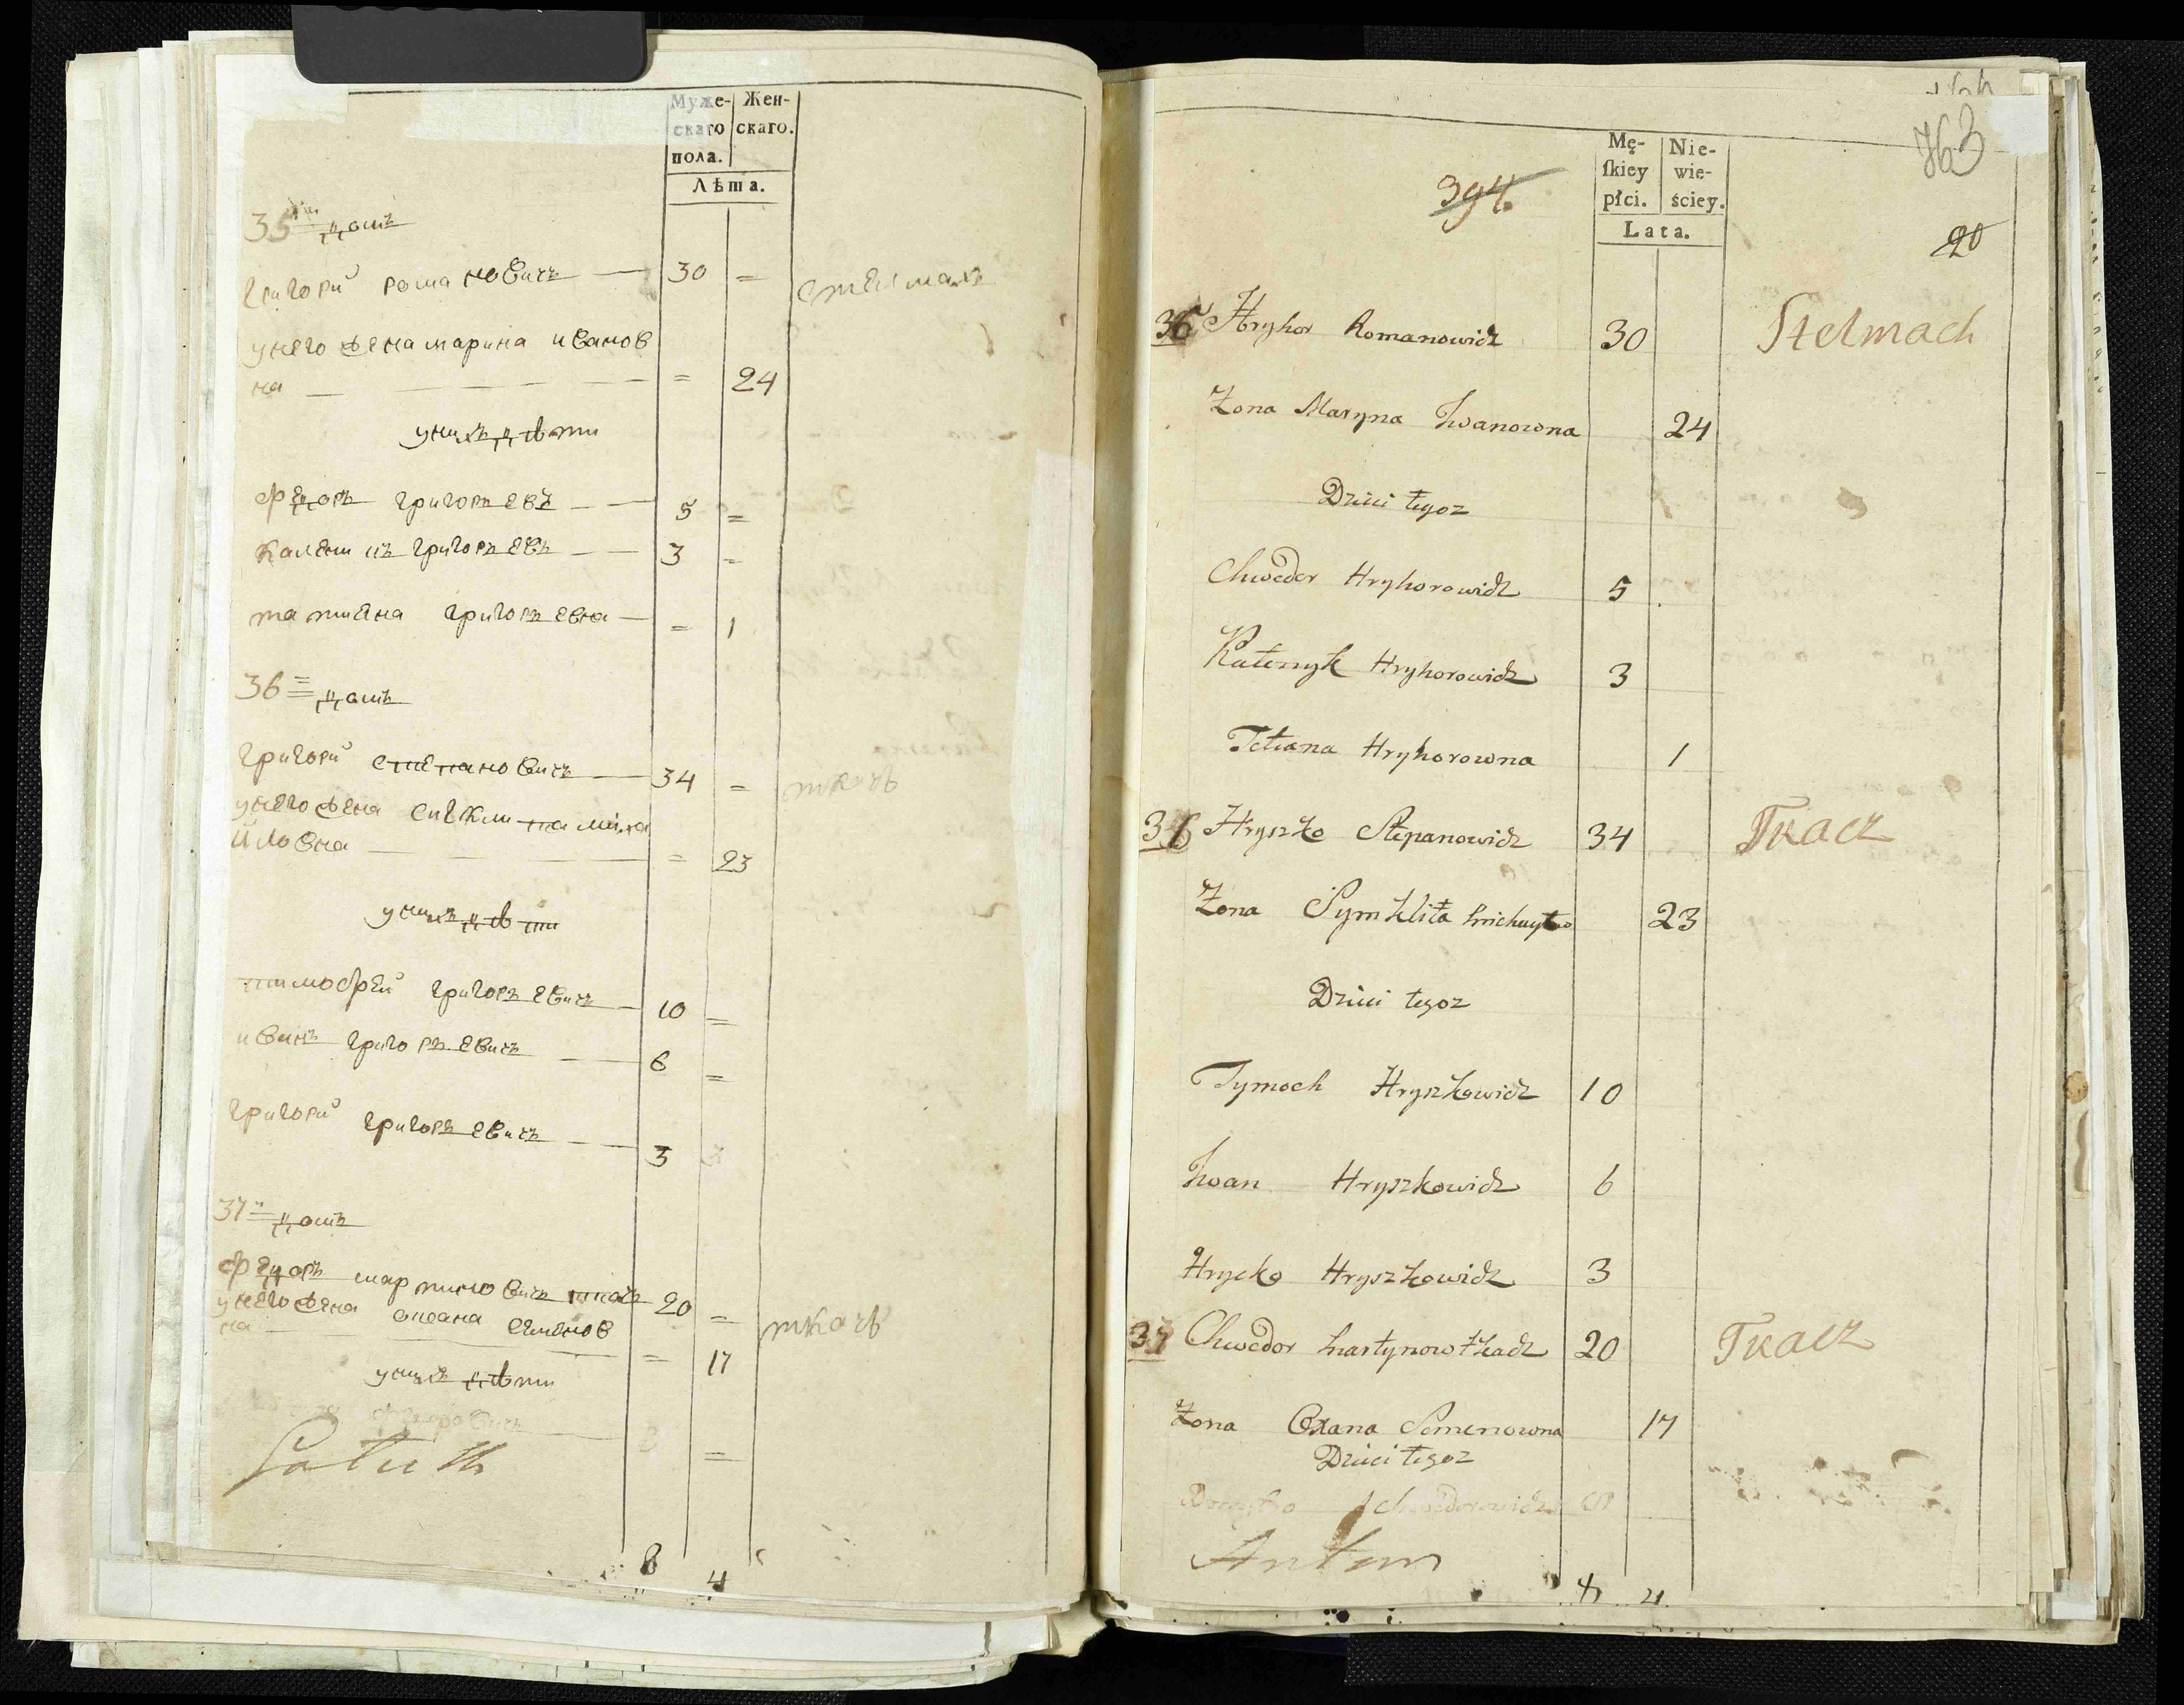 Муже-
скаго
пола.
Жен-
скаго.
Лѣта.
35 домъ
григори романовичъ — 30 = стелмахъ
унего жена марина иванов
на — = 24
унихъ дѣти
федоръ григорьевъ — 5 =
каленикъ григорьевъ — 3 =
татиена григорьевна — = 1
36 домъ
григори степановичъ — 34 = ткачъ
унего жена синклита миха
йловна — = 23
унихъ дѣти
тимофей григорьевичъ — 10 =
иванъ григорьевичъ — 6 =
григори григорьевичъ — 3
37 домъ
федоръ мартиновичъ ткачъ 20 = ткачъ
унего жена оксана семенов
на — = 17
унихъ дѣти
федоровичъ — 3 =
8 4
763
394.
20
Mę-
ſkiey
płci.
Nie-
wie-
ściey.
Lata.
35 Hryhor Romanowicz 30 Stelmach
Zona Maryna Iwanowna 24
Dzieci tegoz
Chwedor Hryhorowicz 5
Kalenyk Hryhorowicz 3
Tetiana Hryhorowna 1
36 Hryszko Stepanowicz 34 Tkacz
Zona Symklita Michayło 23
Dzieci tegoz
Tymoch Hryszkowicz 10
Iwan Hryszkowicz 6
Hrycko Hryszkowicz 3
37 Chwedor Martynow tkacz 20 Tkacz
Zona Oxana Semenowna 17
Dzieci tegoz
Chwedorowicz
Anton